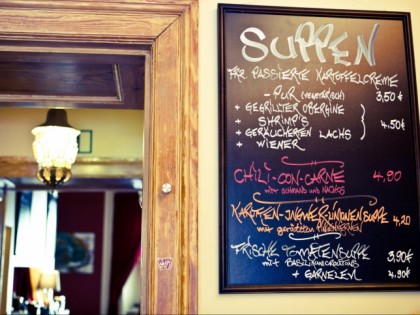 SUPPEN
FR. PASSIERTE KARTOFFELCREME
- PUR (VEGETARISCH) 3,50 €
+ GEGRILLTER OBERGINE
+ SHRIMP'S
+ GERÄUCHERTEN LACHS 4,50€
+ WIENER
CHILI-CON-CARNE 4,90
mit SCHMAND und NACHOS
KAROTTEN-INGWER-LINSENSUPPE 4,20
mit gerösteten
FRISCHE TOMATENSUPPE 3,90€
mit BASILIKUM
+ GARNELEN 4,90€